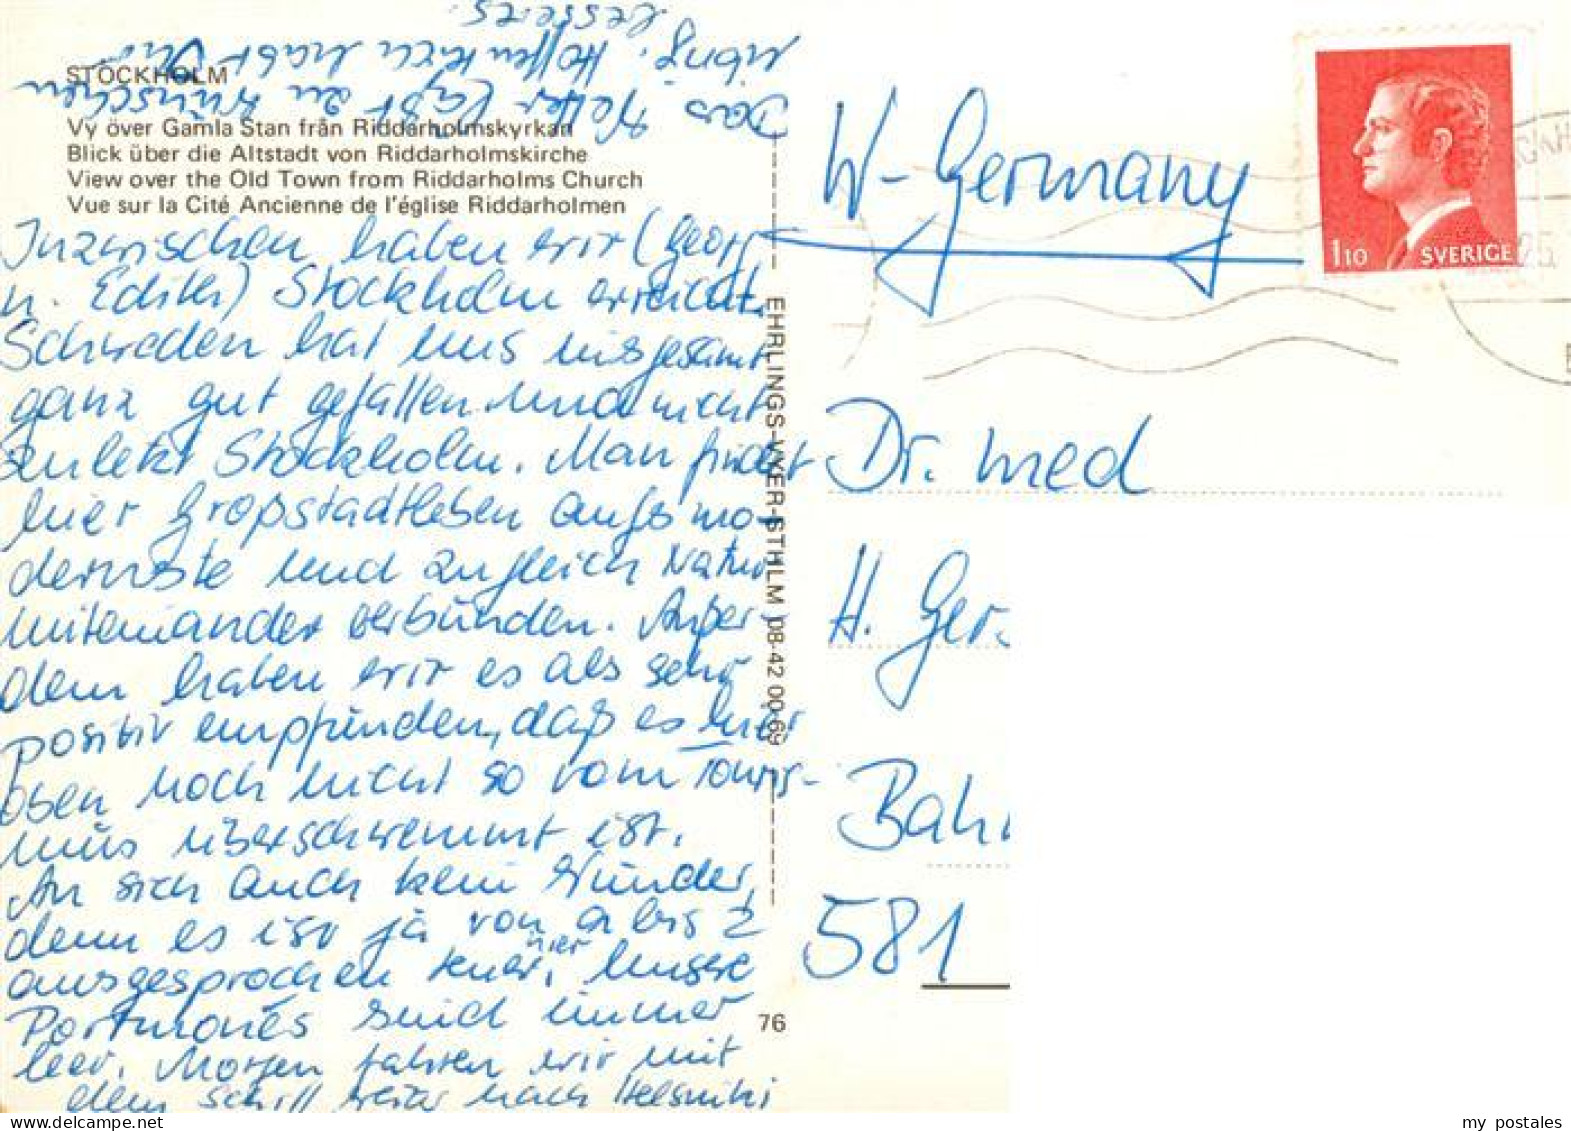 STOCKHOLM
Vy över Gamla Stan från Riddarholmskyrkan
Blick über die Altstadt von Riddarholmskirche
View over the Old Town from Riddarholms Church
Vue sur la Cité Ancienne de l'église Riddarholmen
Inzwischen haben wir (Georg
u. Edith) Stockholm erreicht.
Schweden hat uns insgesamt
ganz gut gefallen und nicht
zuletzt Stockholm. Man findet
hier Großstadtleben aufs mo-
dernste und zugleich Natur
miteinander verbunden. Außer-
dem haben wir es als sehr
positiv empfunden, daß es hier
oben noch nicht so vom Touris-
mus überschwemmt ist.
An sich auch kein Wunder,
denn es ist ja von A bis Z
ausgesprochen teuer hier. Unsere
Portmonés sind immer
leer. Morgen fahren wir mit
dem Schiff weiter nach Helsinki
Das Wetter läßt zu wünschen
übrig. Hoffentlich habt Ihr
besseres.
EHRLINGS-VYER-STHLM 08-42 00 69
76
W-Germany
Dr. med
H. Ger
Bah
581
1 10 SVERIGE
25
my_postales